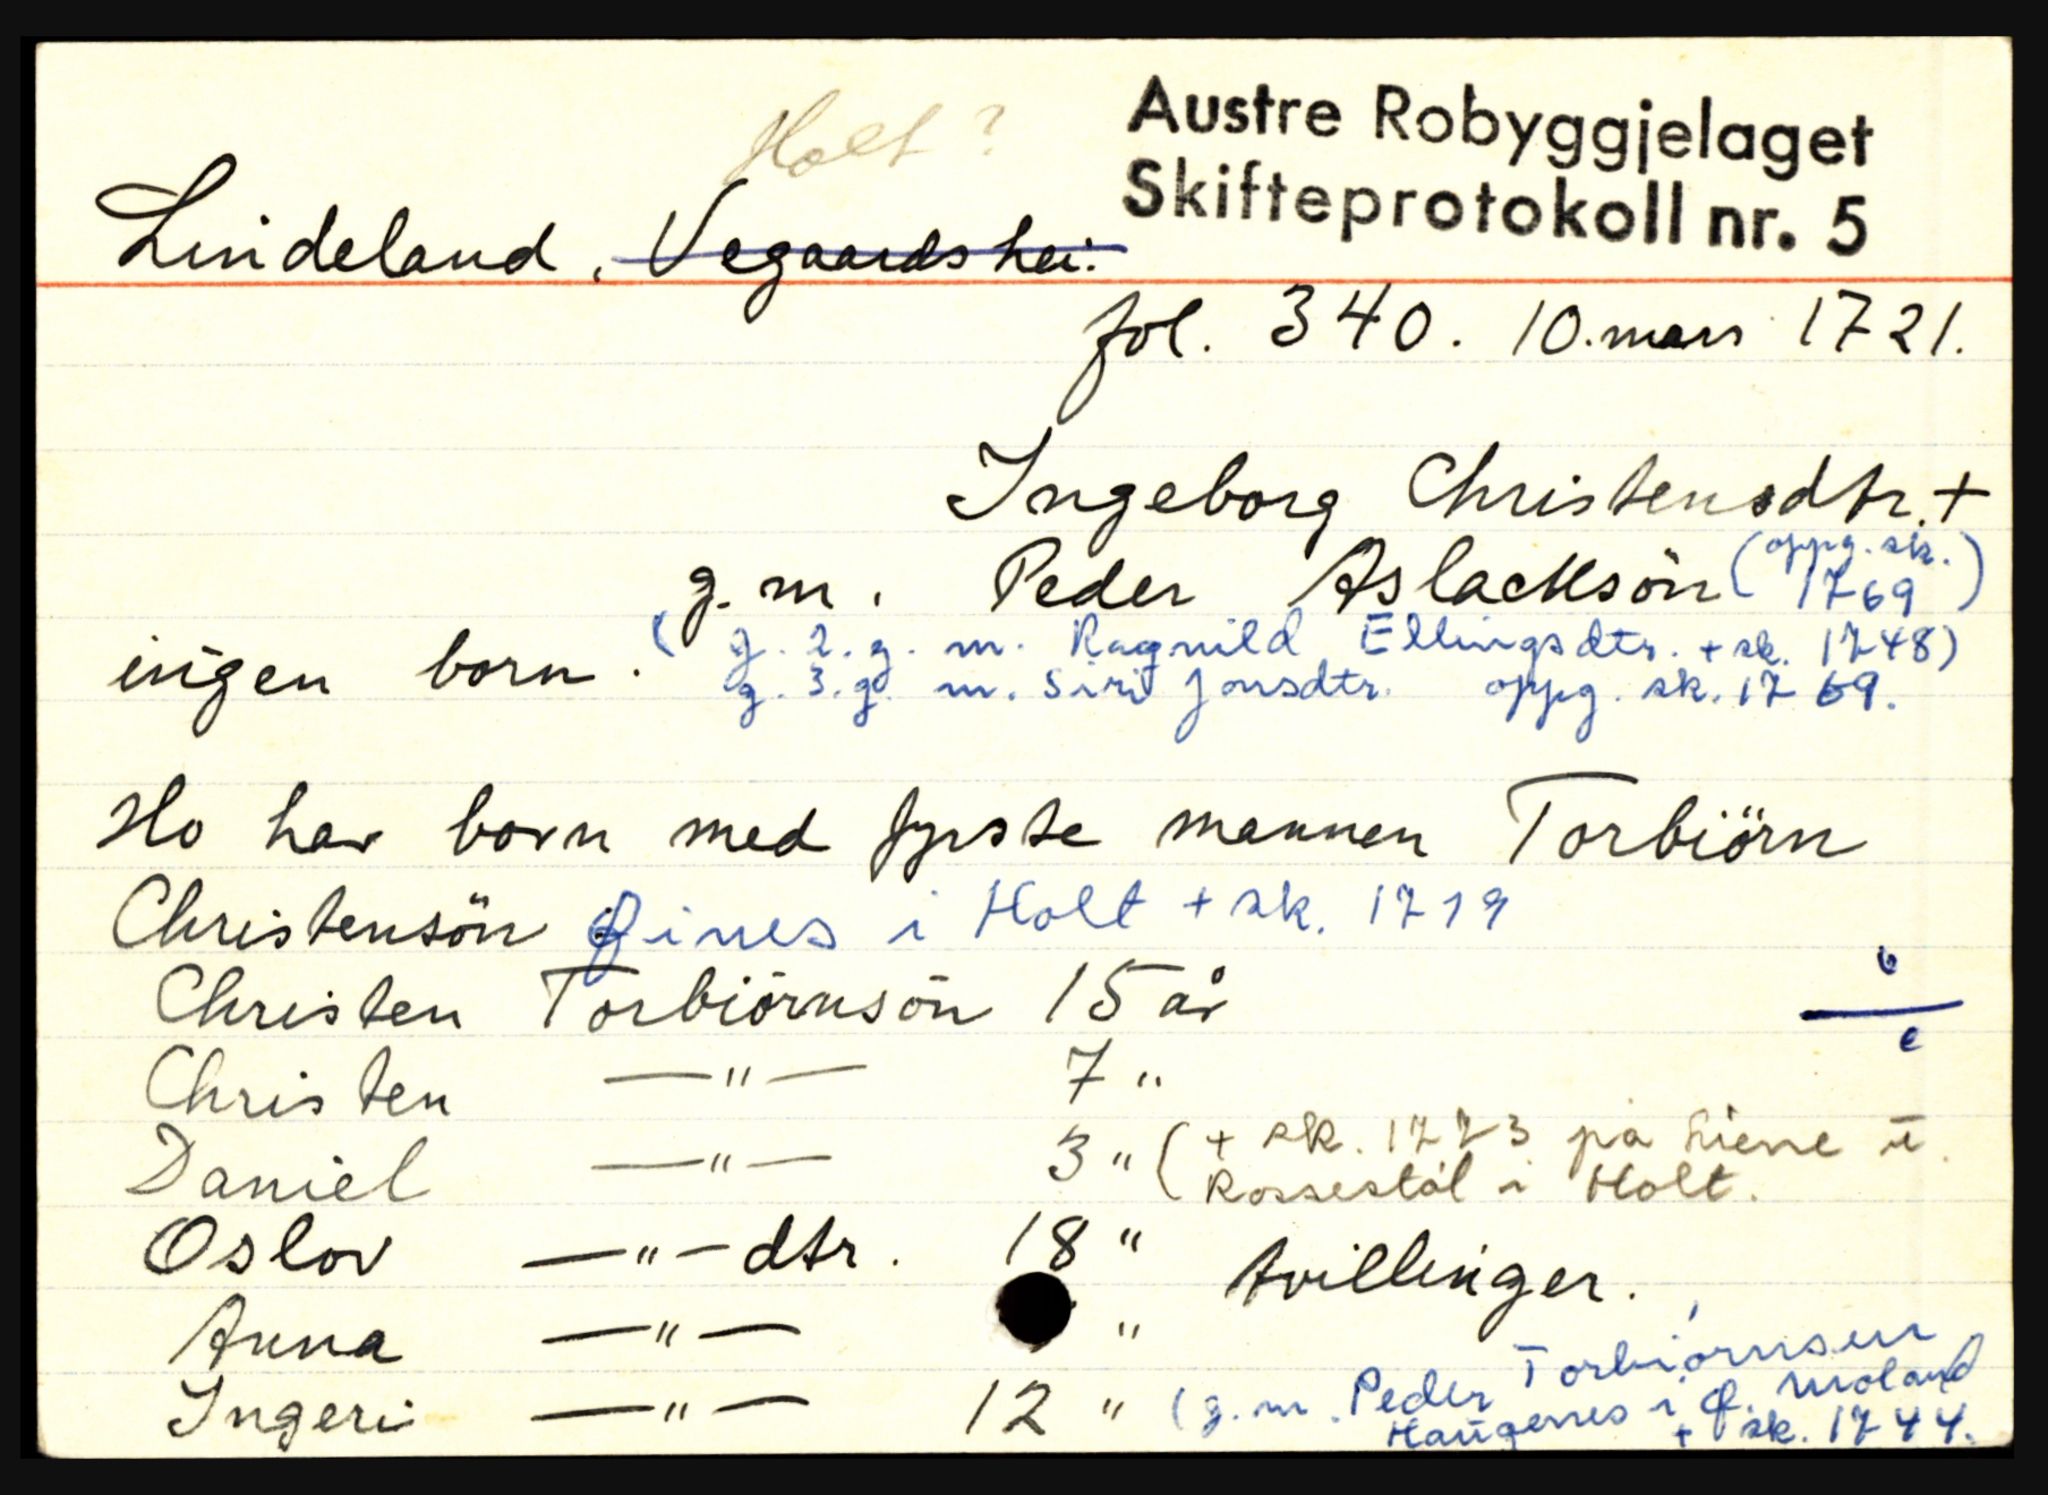 Holt?
Austre Robyggjelaget
Skifteprotokoll nr. 5
Lindeland, Vegaardshei.
fol. 340. 10. mars 1721.
Ingeborg Christensdtr. +
g. m. Peder Aslacksön (oppg. sk. 1769)
ingen born. (g. 2. g. m. Ragnild Ellingsdtr. + sk. 1748)
g. 3. g. m. Siri Jonsdtr. oppg. sk. 1769.
Ho har born med fyrste mannen Torbiörn
Christensön Fines i Holt + sk. 1719
Christen Torbiörnsön 15 år
Christen —"— 7 "
Daniel —"— 3 " (+ sk. 1773 på Liene u.
Rossestöl i Holt.
Oslov —"— dtr. 18 "
tvillinger.
Anna —"— "
Ingeri —"— 12 " (g. m. Peder Torbiørnsen
Haugenes i Ø. Moland
+ sk. 1744.